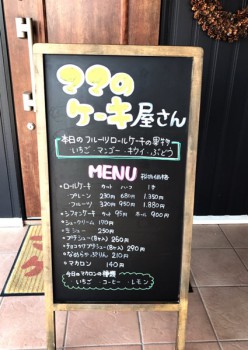 ママの
ケーキ屋さん
本日のフルーツロールケーキの果物
いちご・マンゴー・キウイ・ぶどう
MENU 税込価格
・ロールケーキ カット ハーフ 1本
プレーン 230円 680円 1.350
フルーツ 320円 950円 1.880円
・シフォンケーキ カット 95円 ホール 900円
・シュークリーム 170円
・生シュー 250円
・プチシュー(8ヶ入) 260円
・チョコがけプチシュー(8ヶ入) 290円
・なめらかぷりん 210円
・マカロン 140円
今日のマカロンの種類
いちご コーヒー レモン